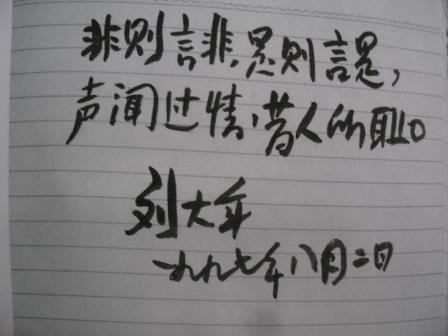 非则言非,是则言是,
声闻过情,昔人所耻。
刘大年
一九九七年八月二日